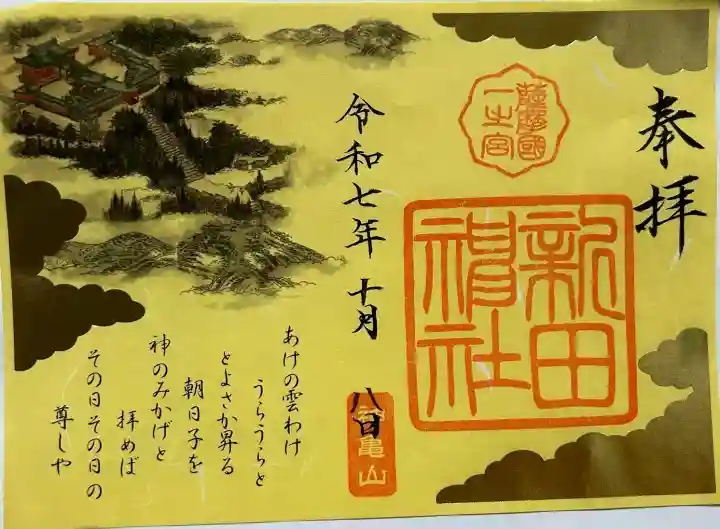 奉拝
薩摩國
一之宮
新田
神社
令和七年 十月 八日
龜山
あけの雲わけ
うらうらと
とよさか昇る
朝日子を
神のみかげと
拝めば
その日その日の
尊しや